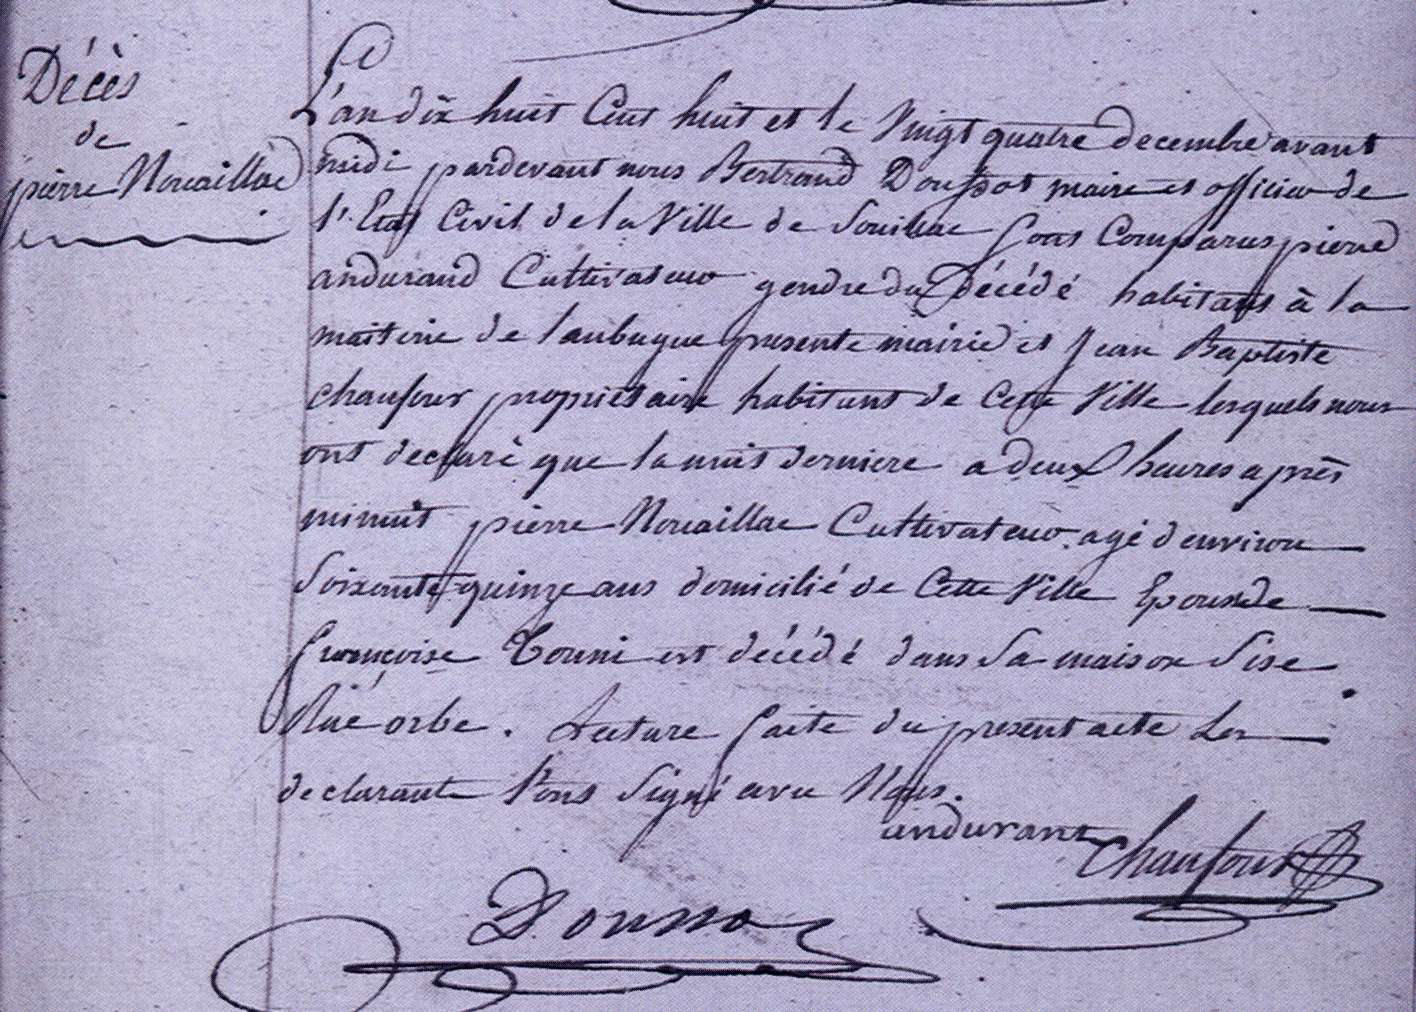 Décès
de
pierre Nouaillac
L'an dix huit Cent huit et le Vingt quatre decembre avant
midi pardevant nous Bertrand Doussot maire et officier de
l'Etat Civil de la Ville de Souillac sont Comparus pierre
andurand Cultivateur gendre du Décédé habitant à la
maiterie de laubugue presente mairie et Jean Baptiste
chaufour propriétaire habitant de Cette Ville lesquels nous
ont declaré que la nuit derniere a deux heures après
minuit pierre Nouaillac Cultivateur agé d'environ
Soixante-quinze ans domicilié de Cette Ville Epoux de
françoise Touni est décédé dans Sa maison Sise
Rue orbe. Lecture faite du present acte Les
declarants l'ont Signé avec Nous.
andurant
Chaufour